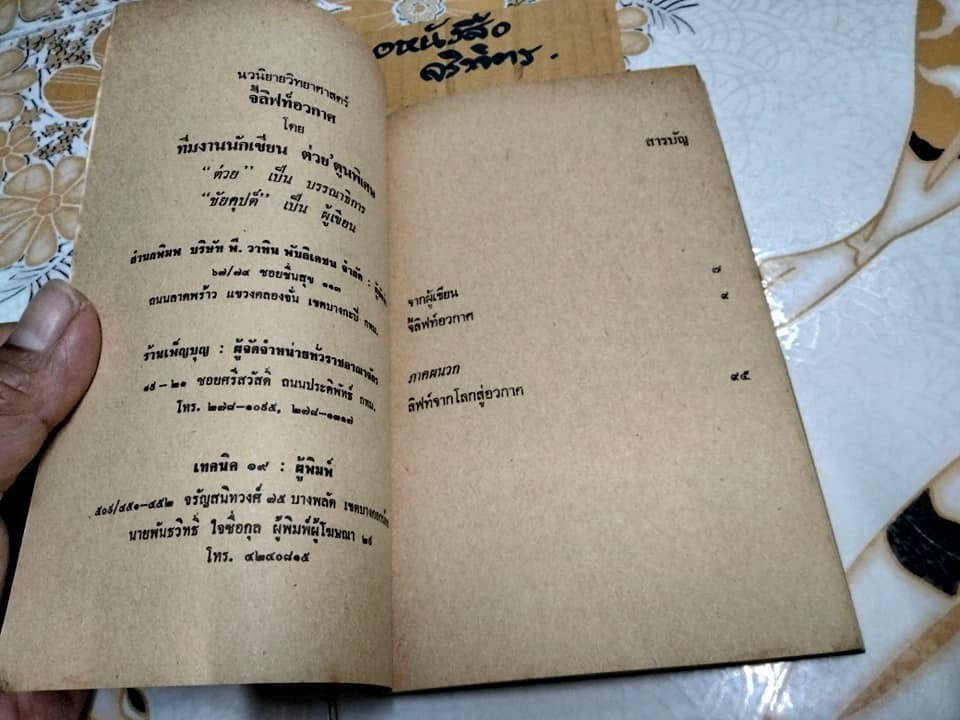 อหนังสือ
จริพัทร.
นวนิยายวิทยาศาสตร์
จี้ลิฟท์อวกาศ
โดย
ทีมงานนักเขียน ต่วย'ตูนพิเศษ
"ต่วย" เป็น บรรณาธิการ
"ชัยคุปต์" เป็น ผู้เขียน
สำนักพิมพ์ บริษัท พี. วาทิน พับลิเคชั่น จำกัด :
๖๗/๗๔ ซอยชื่นสุข ๑๑๓
ถนนลาดพร้าว แขวงคลองจั่น เขตบางกะปิ กทม.
ร้านเพ็ญบุญ : ผู้จัดจำหน่ายทั่วราชอาณาจักร
๑๙-๒๑ ซอยศรีสวัสดิ์ ถนนประดิพัทธ์ กทม.
โทร. ๒๗๘-๑๐๙๕, ๒๗๘-๑๓๑๗
เทคนิค ๑๙ : ผู้พิมพ์
๕๐๙/๔๕๑-๔๕๒ จรัญสนิทวงศ์ ๗๕ บางพลัด
นายพันธวิทธิ์ ใจซื่อกุล ผู้พิมพ์ผู้โฆษณา
โทร. ๔๒๔๐๘๑๕
สารบัญ
จากผู้เขียน ๗
จี้ลิฟท์อวกาศ ๙
ภาคผนวก
ลิฟท์จากโลกสู่อวกาศ ๙๕